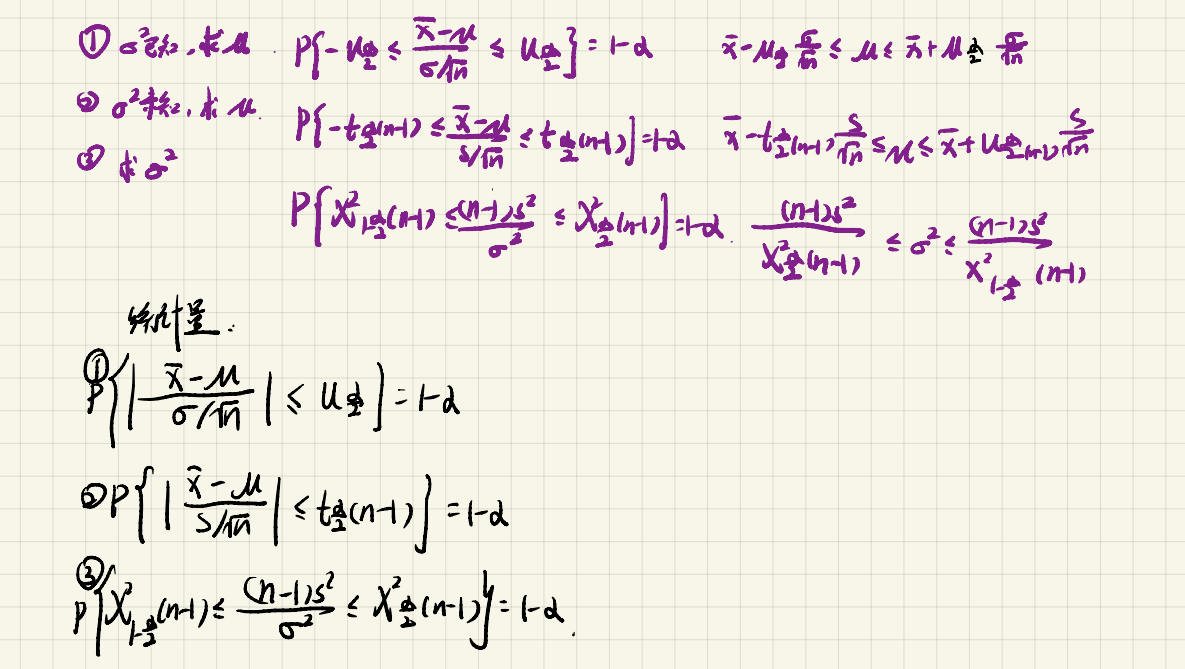 ① σ²已知,求μ. P{-u_{α/2} ≤ \frac{x̄-μ}{σ/√n} ≤ u_{α/2}} = 1-α x̄-μ_{α/2} \frac{σ}{√n} ≤ μ ≤ x̄+μ_{α/2} \frac{σ}{√n}
② σ²未知,求μ. P{-t_{α/2}(n-1) ≤ \frac{x̄-μ}{s/√n} ≤ t_{α/2}(n-1)} = 1-α x̄-t_{α/2}(n-1) \frac{s}{√n} ≤ μ ≤ x̄+u_{α/2}(n-1) \frac{s}{√n}
③ 求σ² P{X²_{1-α/2}(n-1) ≤ \frac{(n-1)s²}{σ²} ≤ X²_{α/2}(n-1)} = 1-α. \frac{(n-1)s²}{X²_{α/2}(n-1)} ≤ σ² ≤ \frac{(n-1)s²}{X²_{1-α/2}(n-1)}
统计量.
① P{|\frac{x̄-μ}{σ/√n}| ≤ u_{α/2}} = 1-α
② P{|\frac{x̄-μ}{s/√n}| ≤ t_{α/2}(n-1)} = 1-α
③ P{X²_{1-α/2}(n-1) ≤ \frac{(n-1)s²}{σ²} ≤ X²_{α/2}(n-1)} = 1-α.